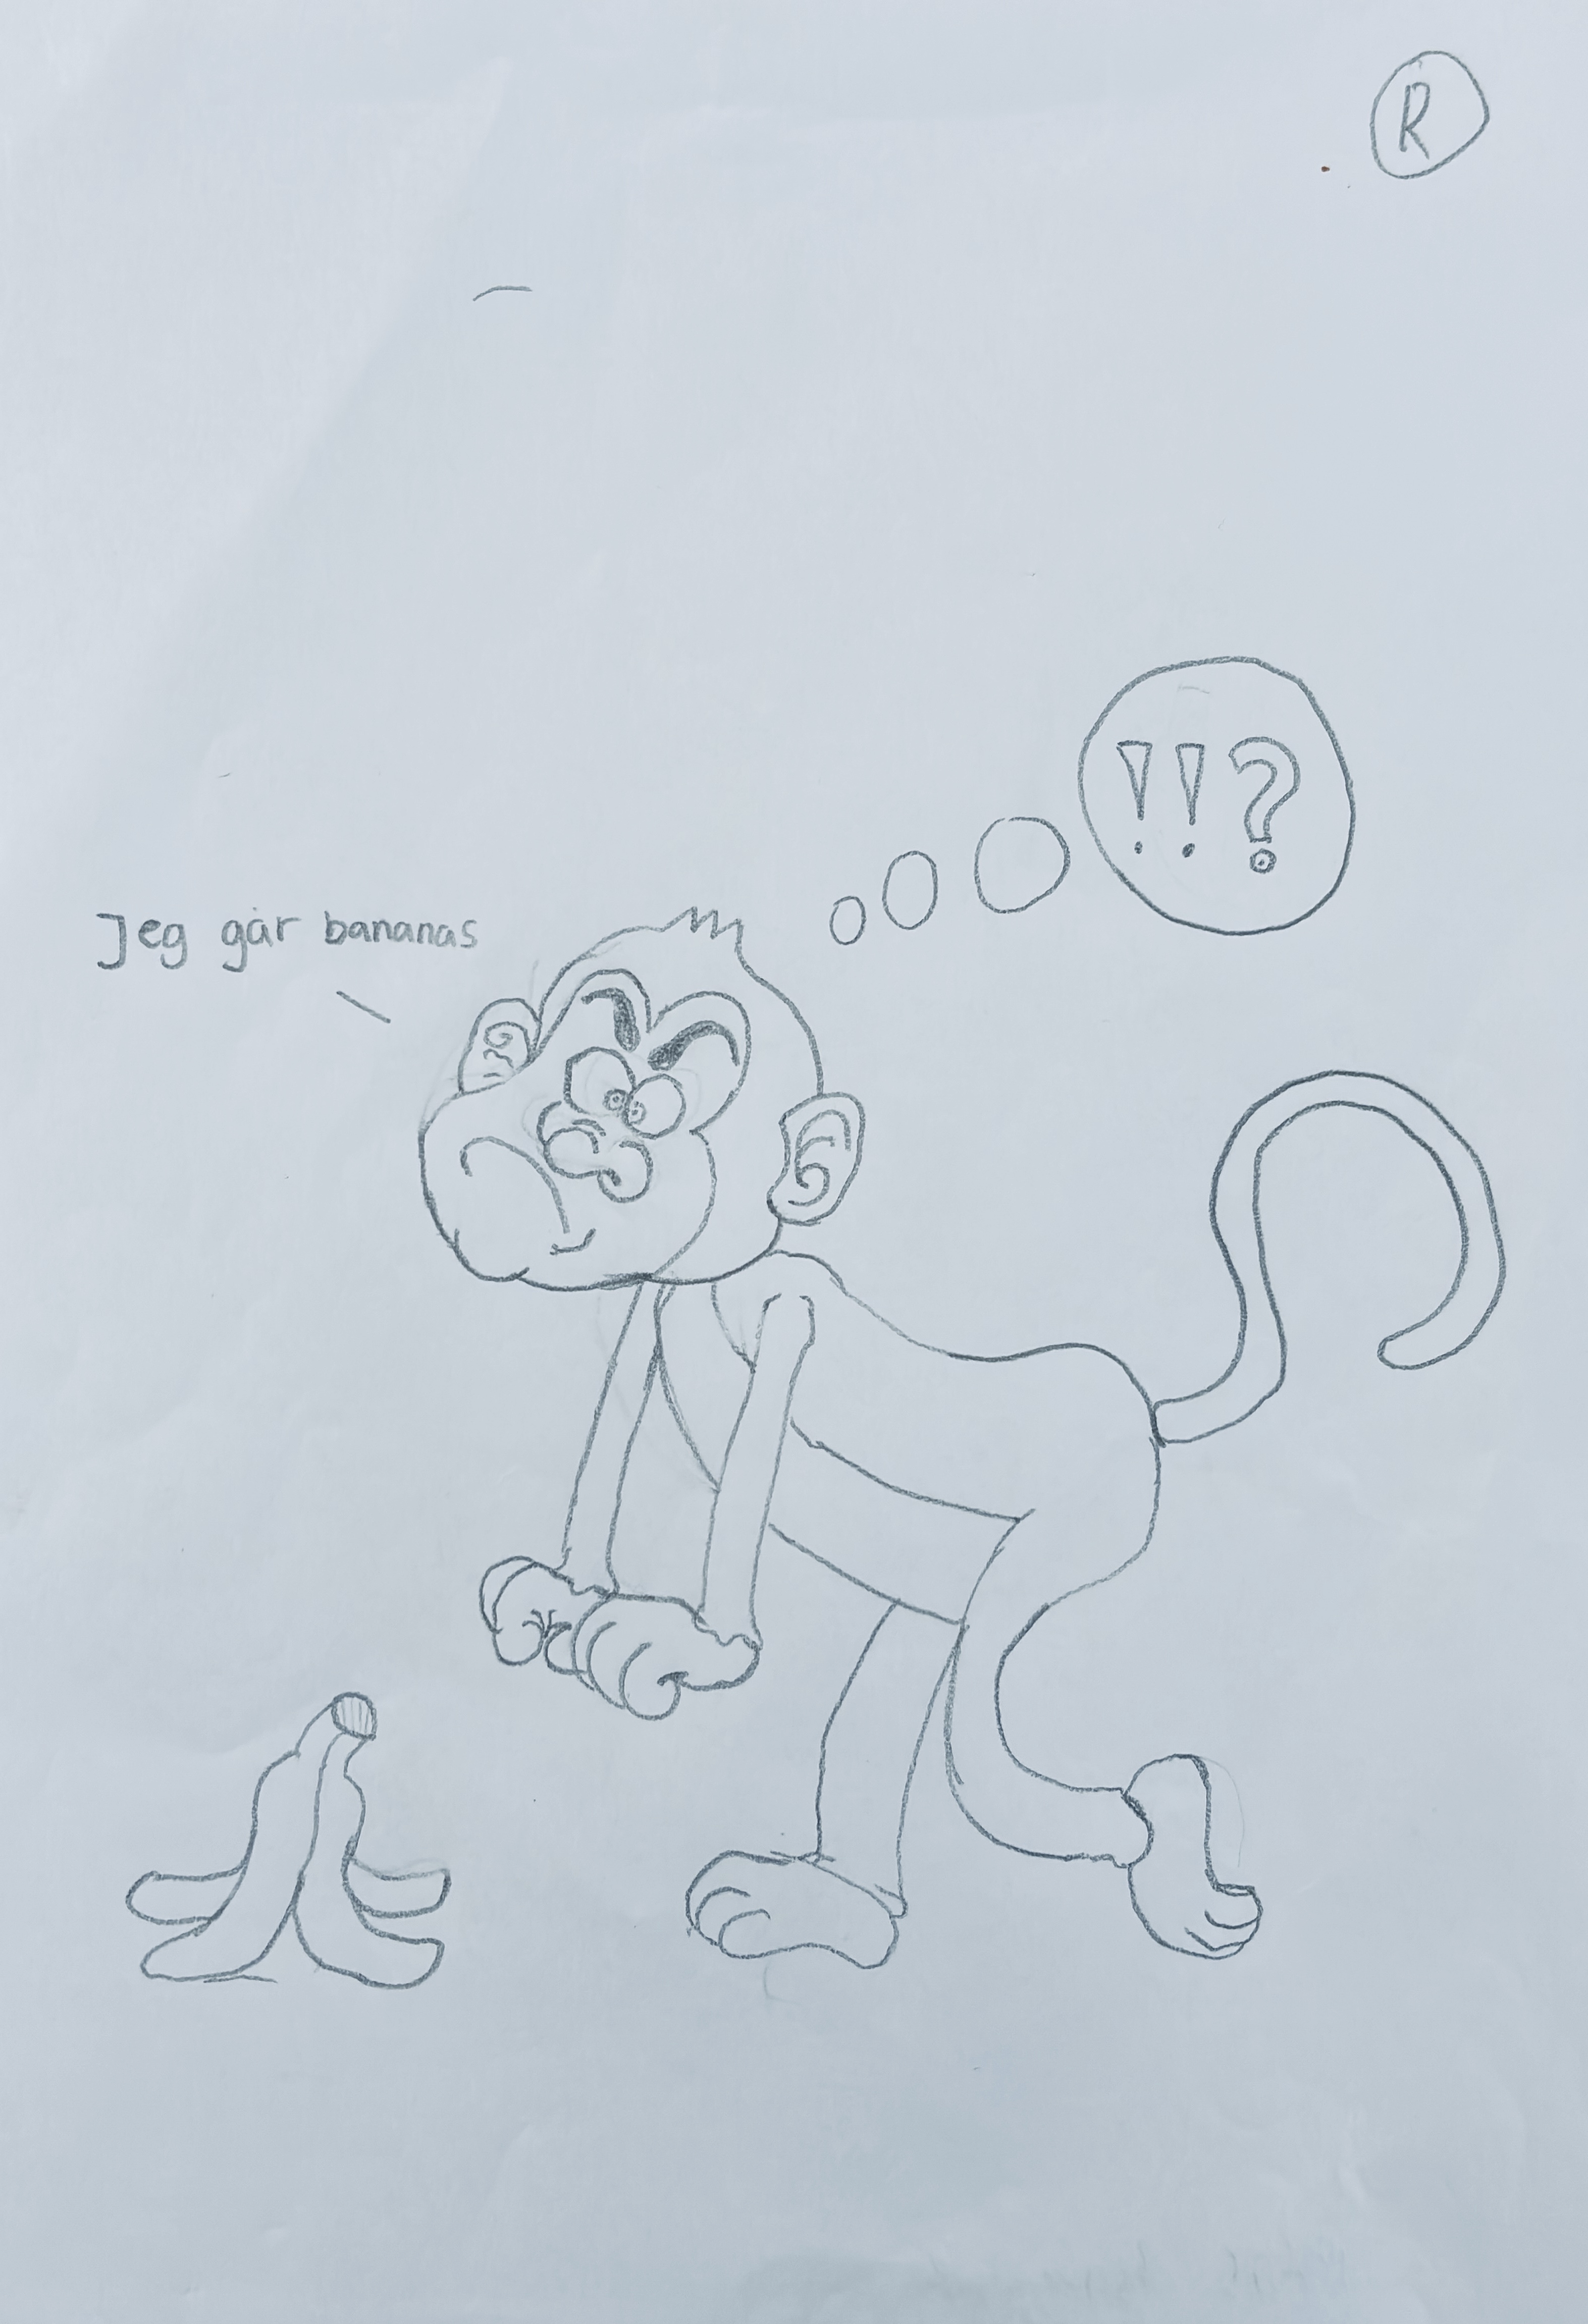 R
!!?
Jeg går bananas